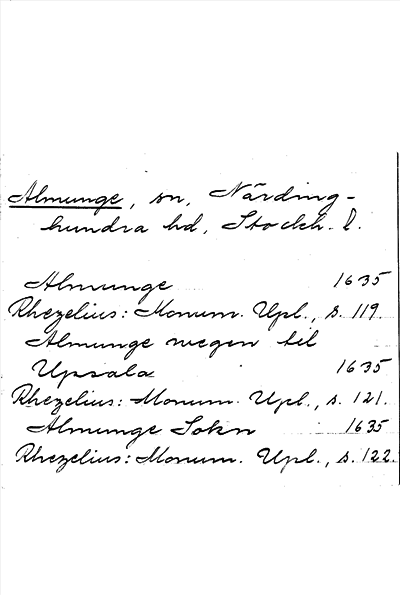 Almunge, sn, Närding-
hundra hd, Stockh. l.
Almunge 1635
Rhezelius: Monum. Upl., s. 119.
Almunge wegen til
Upsala 1635
Rhezelius: Monum. Upl., s. 121.
Almunge Sokn 1635
Rhezelius: Monum. Upl., s. 122.